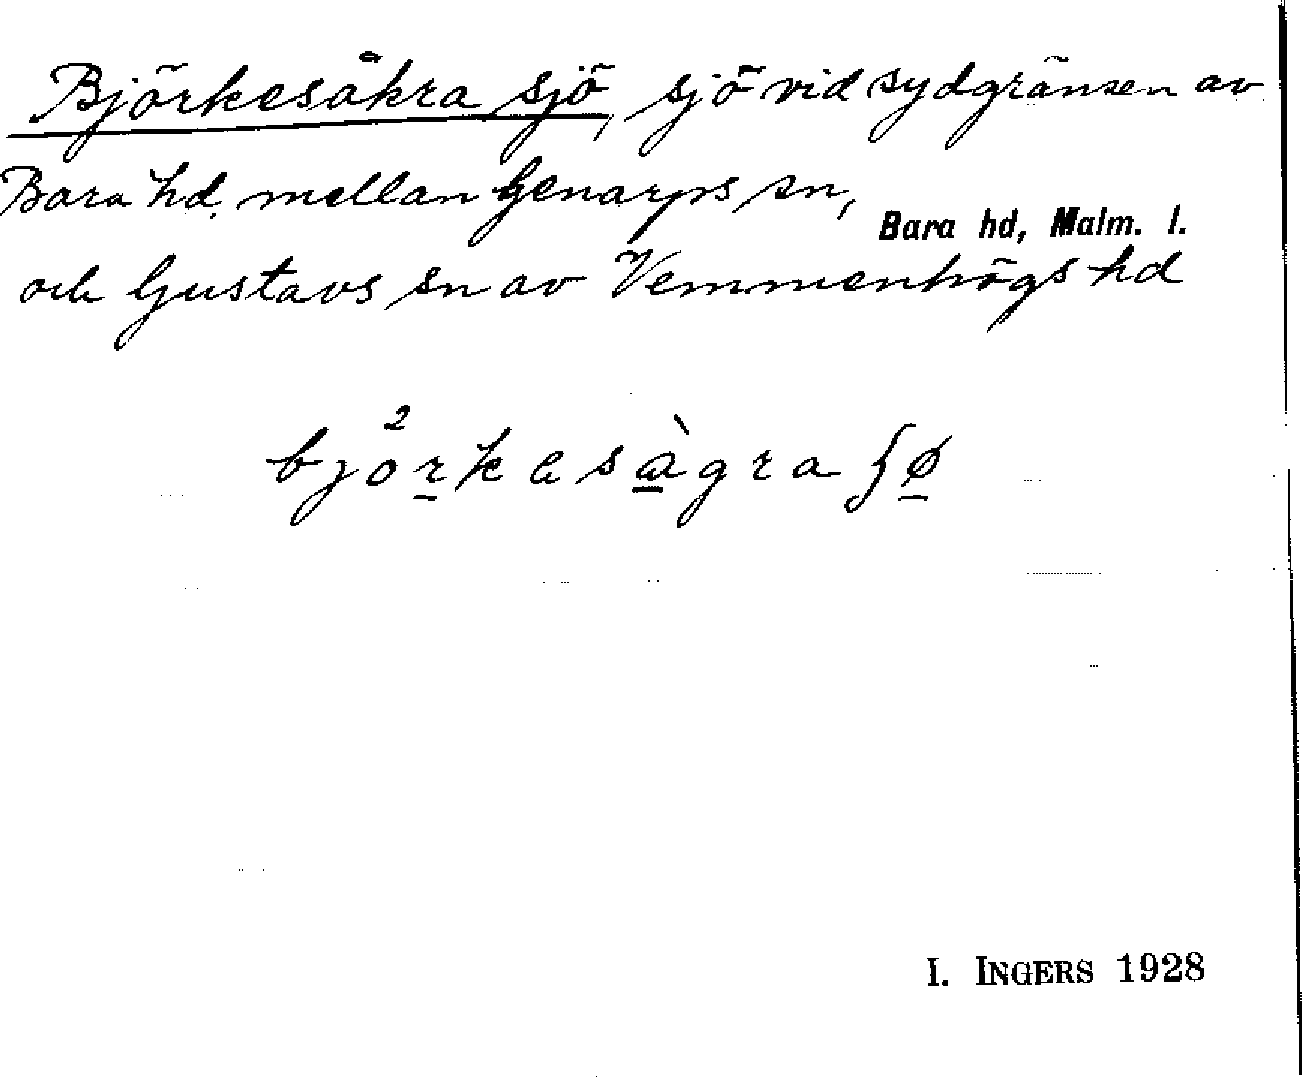 Björkesåkra sjö, sjö vid sydgränsen av
Bara hd. mellan Genarps sn,
Bara hd, Malm. l.
och Gustavs sn av Vemmenhögs hd
bjo²rkasàgra ʃø
I. INGERS 1928